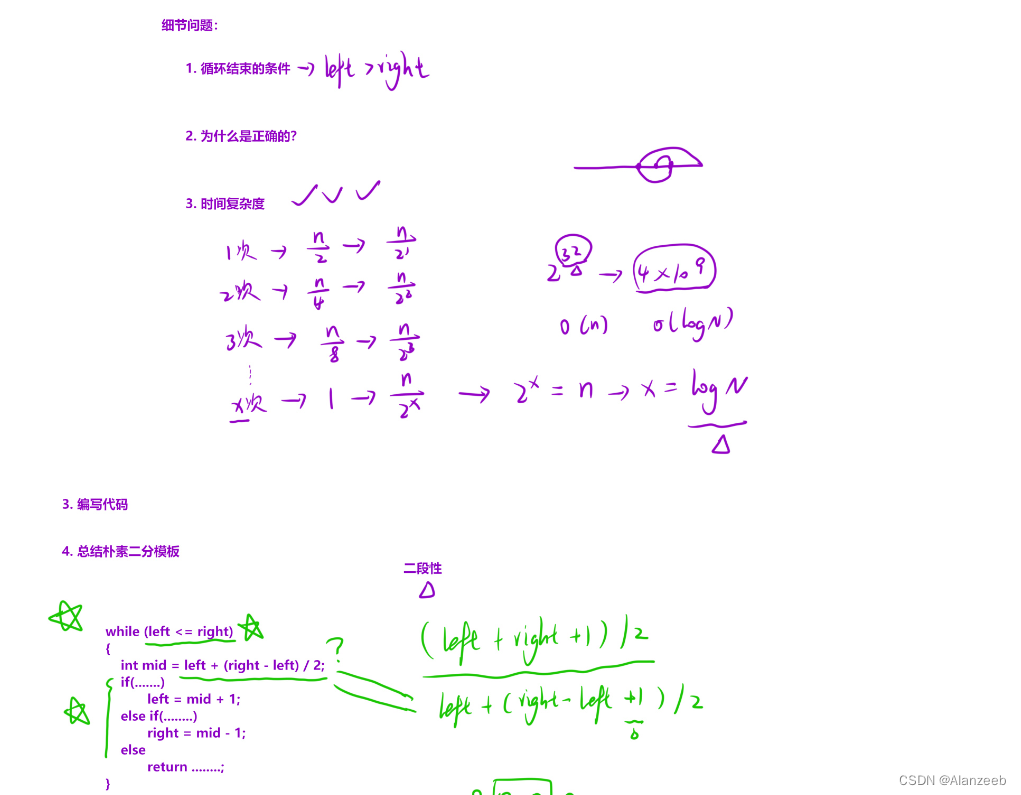 细节问题：
1. 循环结束的条件 → left > right
2. 为什么是正确的？
3. 时间复杂度
1次 → n/2 → n/2^1
2次 → n/4 → n/2^2
2^32 → 4×10^9
3次 → n/8 → n/2^3
O(n) O(logN)
⋮
x次 → 1 → n/2^x → 2^x = n → x = logN
3. 编写代码
4. 总结朴素二分模板
二段性
while (left <= right)
{
int mid = left + (right - left) / 2;
?
(left + right + 1) / 2
left + (right - left + 1) / 2
if(.......)
left = mid + 1;
else if(........)
right = mid - 1;
else
return ........;
}
CSDN @Alanzeeb